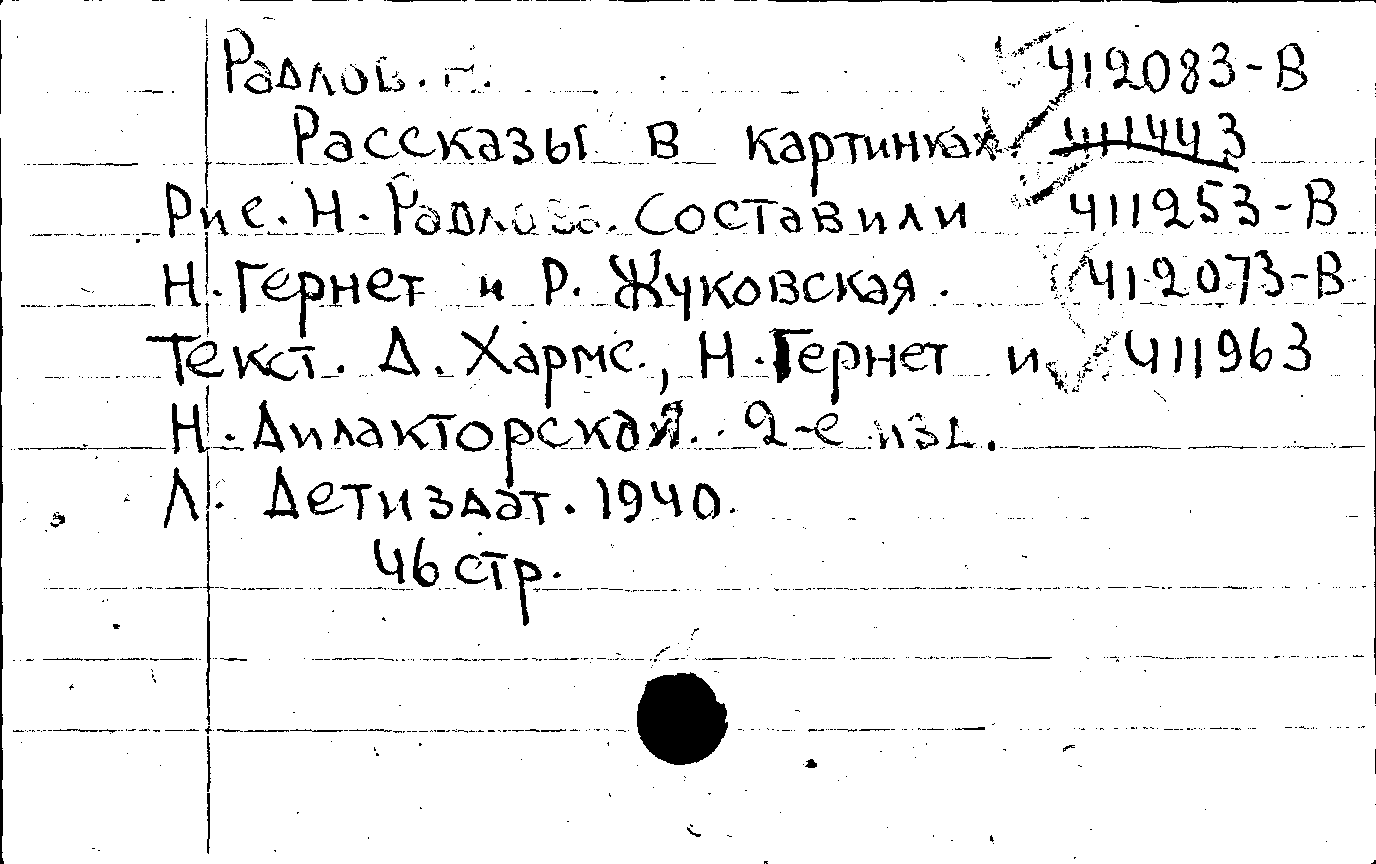 Радлов. Н. 412083-В
Рассказы в картинках 411443
Рис. Н. Радлова. Составили 411253-В
Н. Гернет и Р. Жуковская. 412073-В
Текст. Д. Хармс., Н. Гернет и 411963
Н. Дилакторская. 2-е изд.
Л. Детиздат. 1940.
46 стр.